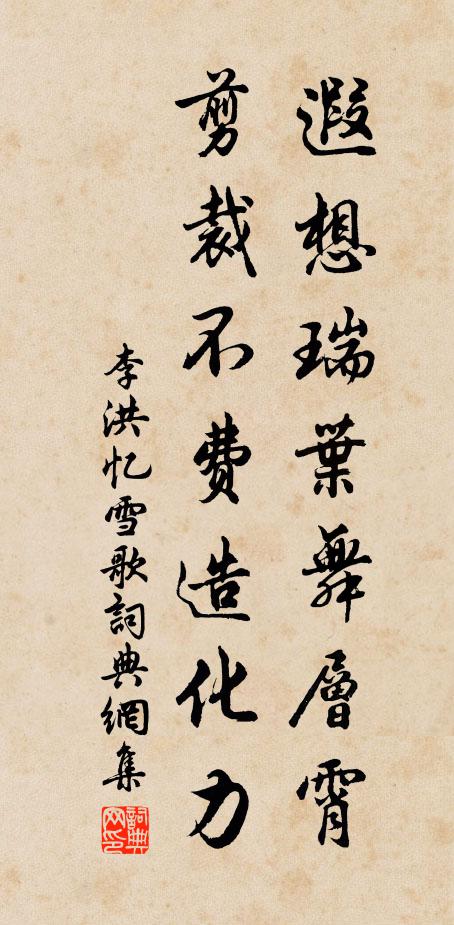 遐想瑞葉舞層霄
剪裁不費造化力
李洪忆雪歌詞典網集
詞典网印